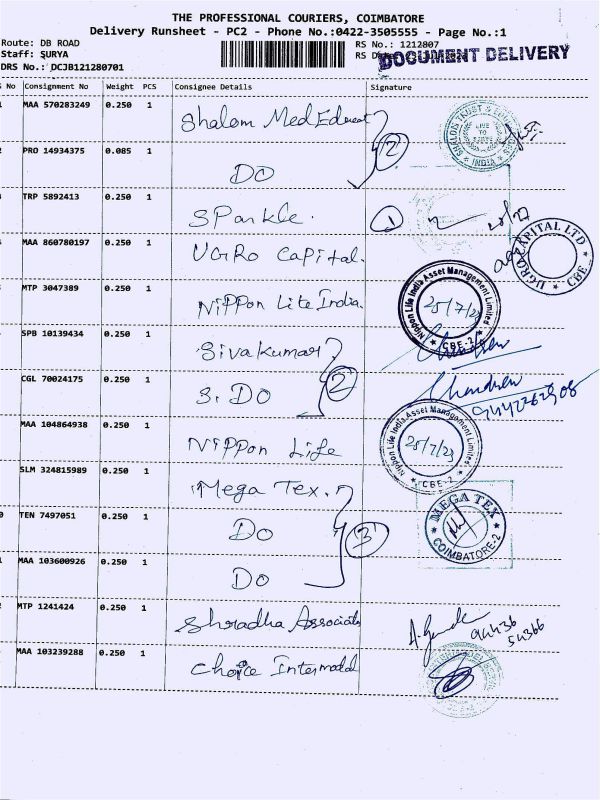 THE PROFESSIONAL COURIERS, COIMBATORE
Delivery Runsheet - PC2 - Phone No.:0422-3505555 - Page No.:1
Route: DB ROAD
Staff: SURYA
DRS No.: DCJB121280701
RS No.: 1212807
RS D
DOCUMENT DELIVERY
No Consignment No Weight PCS Consignee Details Signature
MAA 570283249 0.250 1 Shalom Med Educat 2 SHALOM TRUST & LIVE TO INDIA
PRO 14934375 0.085 1 DO
TRP 5892413 0.250 1 SParkle. 1
MAA 860780197 0.250 1 UGRO CaPital. UGRO CAPITAL LTD CBE
MTP 3047389 0.250 1 NiPPon Lite India. Nippon Life India Asset Management Limited 25/7/23 CBE-2
SPB 10139434 0.250 1 Sivakumar 2 Chandran
CGL 70024175 0.250 1 S. DO Chandran
MAA 104864938 0.250 1 NiPPon Life Nippon Life India Asset Management Limited 25/7/23 CBE-2
SLM 324815989 0.250 1 Mega Tex. 3 MEGA TEX COIMBATORE-2
TEN 7497051 0.250 1 DO
MAA 103600926 0.250 1 DO
MTP 1241424 0.250 1 Shradha Associats 94436 54366
MAA 103239288 0.250 1 Choice Intermodal